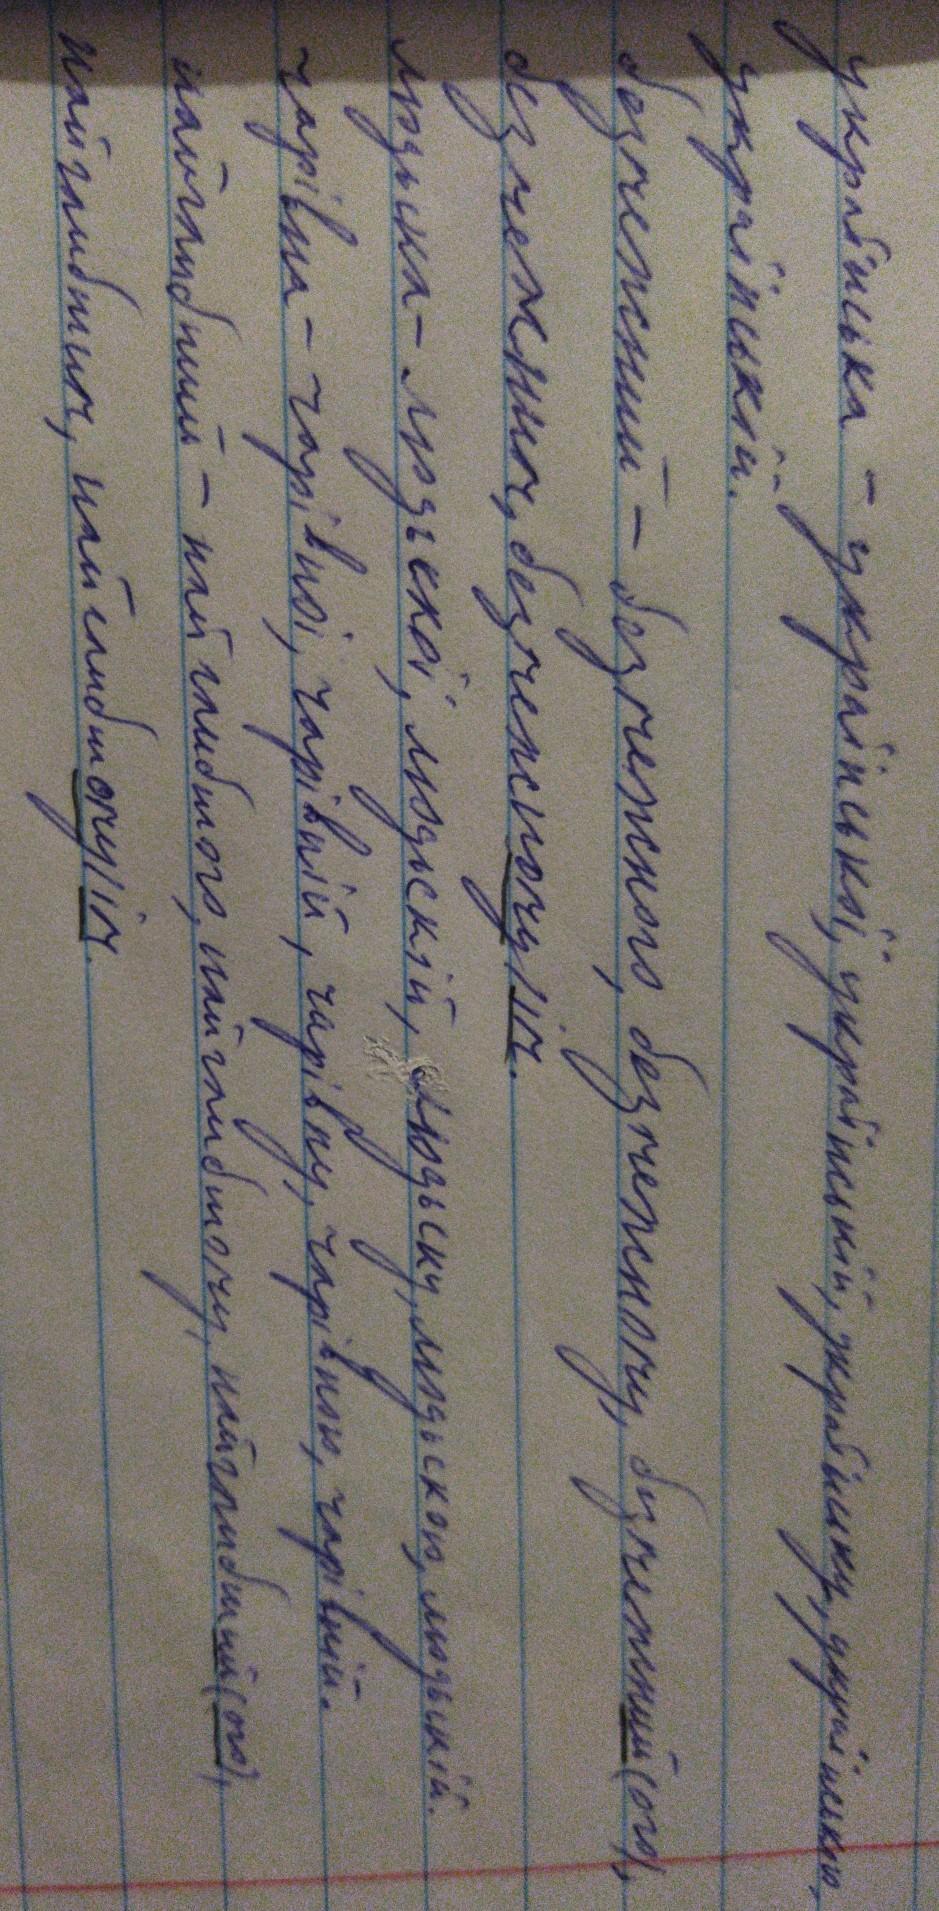 українська - української, українській, українську, українською,
українській.
безмежний - безмежного, безмежному, безмежний(ого),
безмежним, безмежному/ім.
людська - людської, людській, людську, людською, людській.
чарівна - чарівної, чарівній, чарівну, чарівною, чарівній.
найглибший - найглибшого, найглибшому, найглибший(ого),
найглибшим, найглибшому/ім.